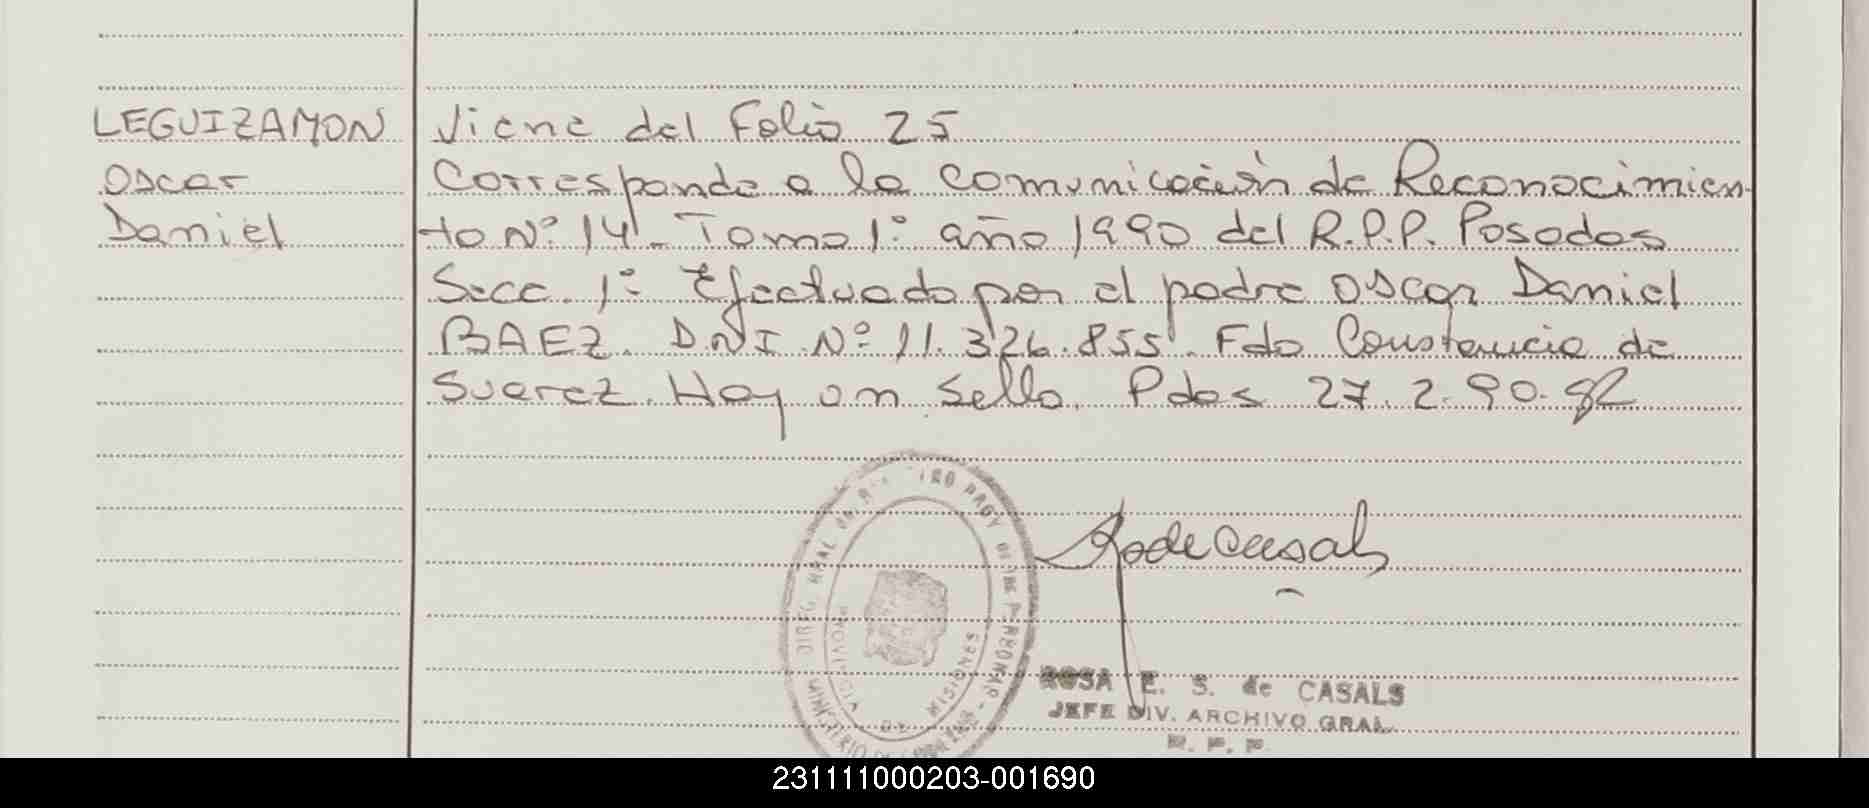 LEGUIZAMON
Oscar
Daniel
Viene del Folio 25
Corresponde a la comunicación de Reconocimien-
to Nº 14. Tomo 1º año 1990 del R.P.P. Posadas
Secc. 1º Efectuado por el padre Oscar Daniel
BAEZ. D.N.I. Nº 11.326.855. Fdo Constancia de
Suarez. Hay un sello. Pdas 27.2.90.
R de Casals
DIREC. GRAL PROV DE LAS PERSONAS - MINISTERIO DE GOBIERNO
PROVINCIA DE MISIONES
ROSA E. S. de CASALS
JEFE DIV. ARCHIVO GRAL.
R. P. P.
231111000203-001690